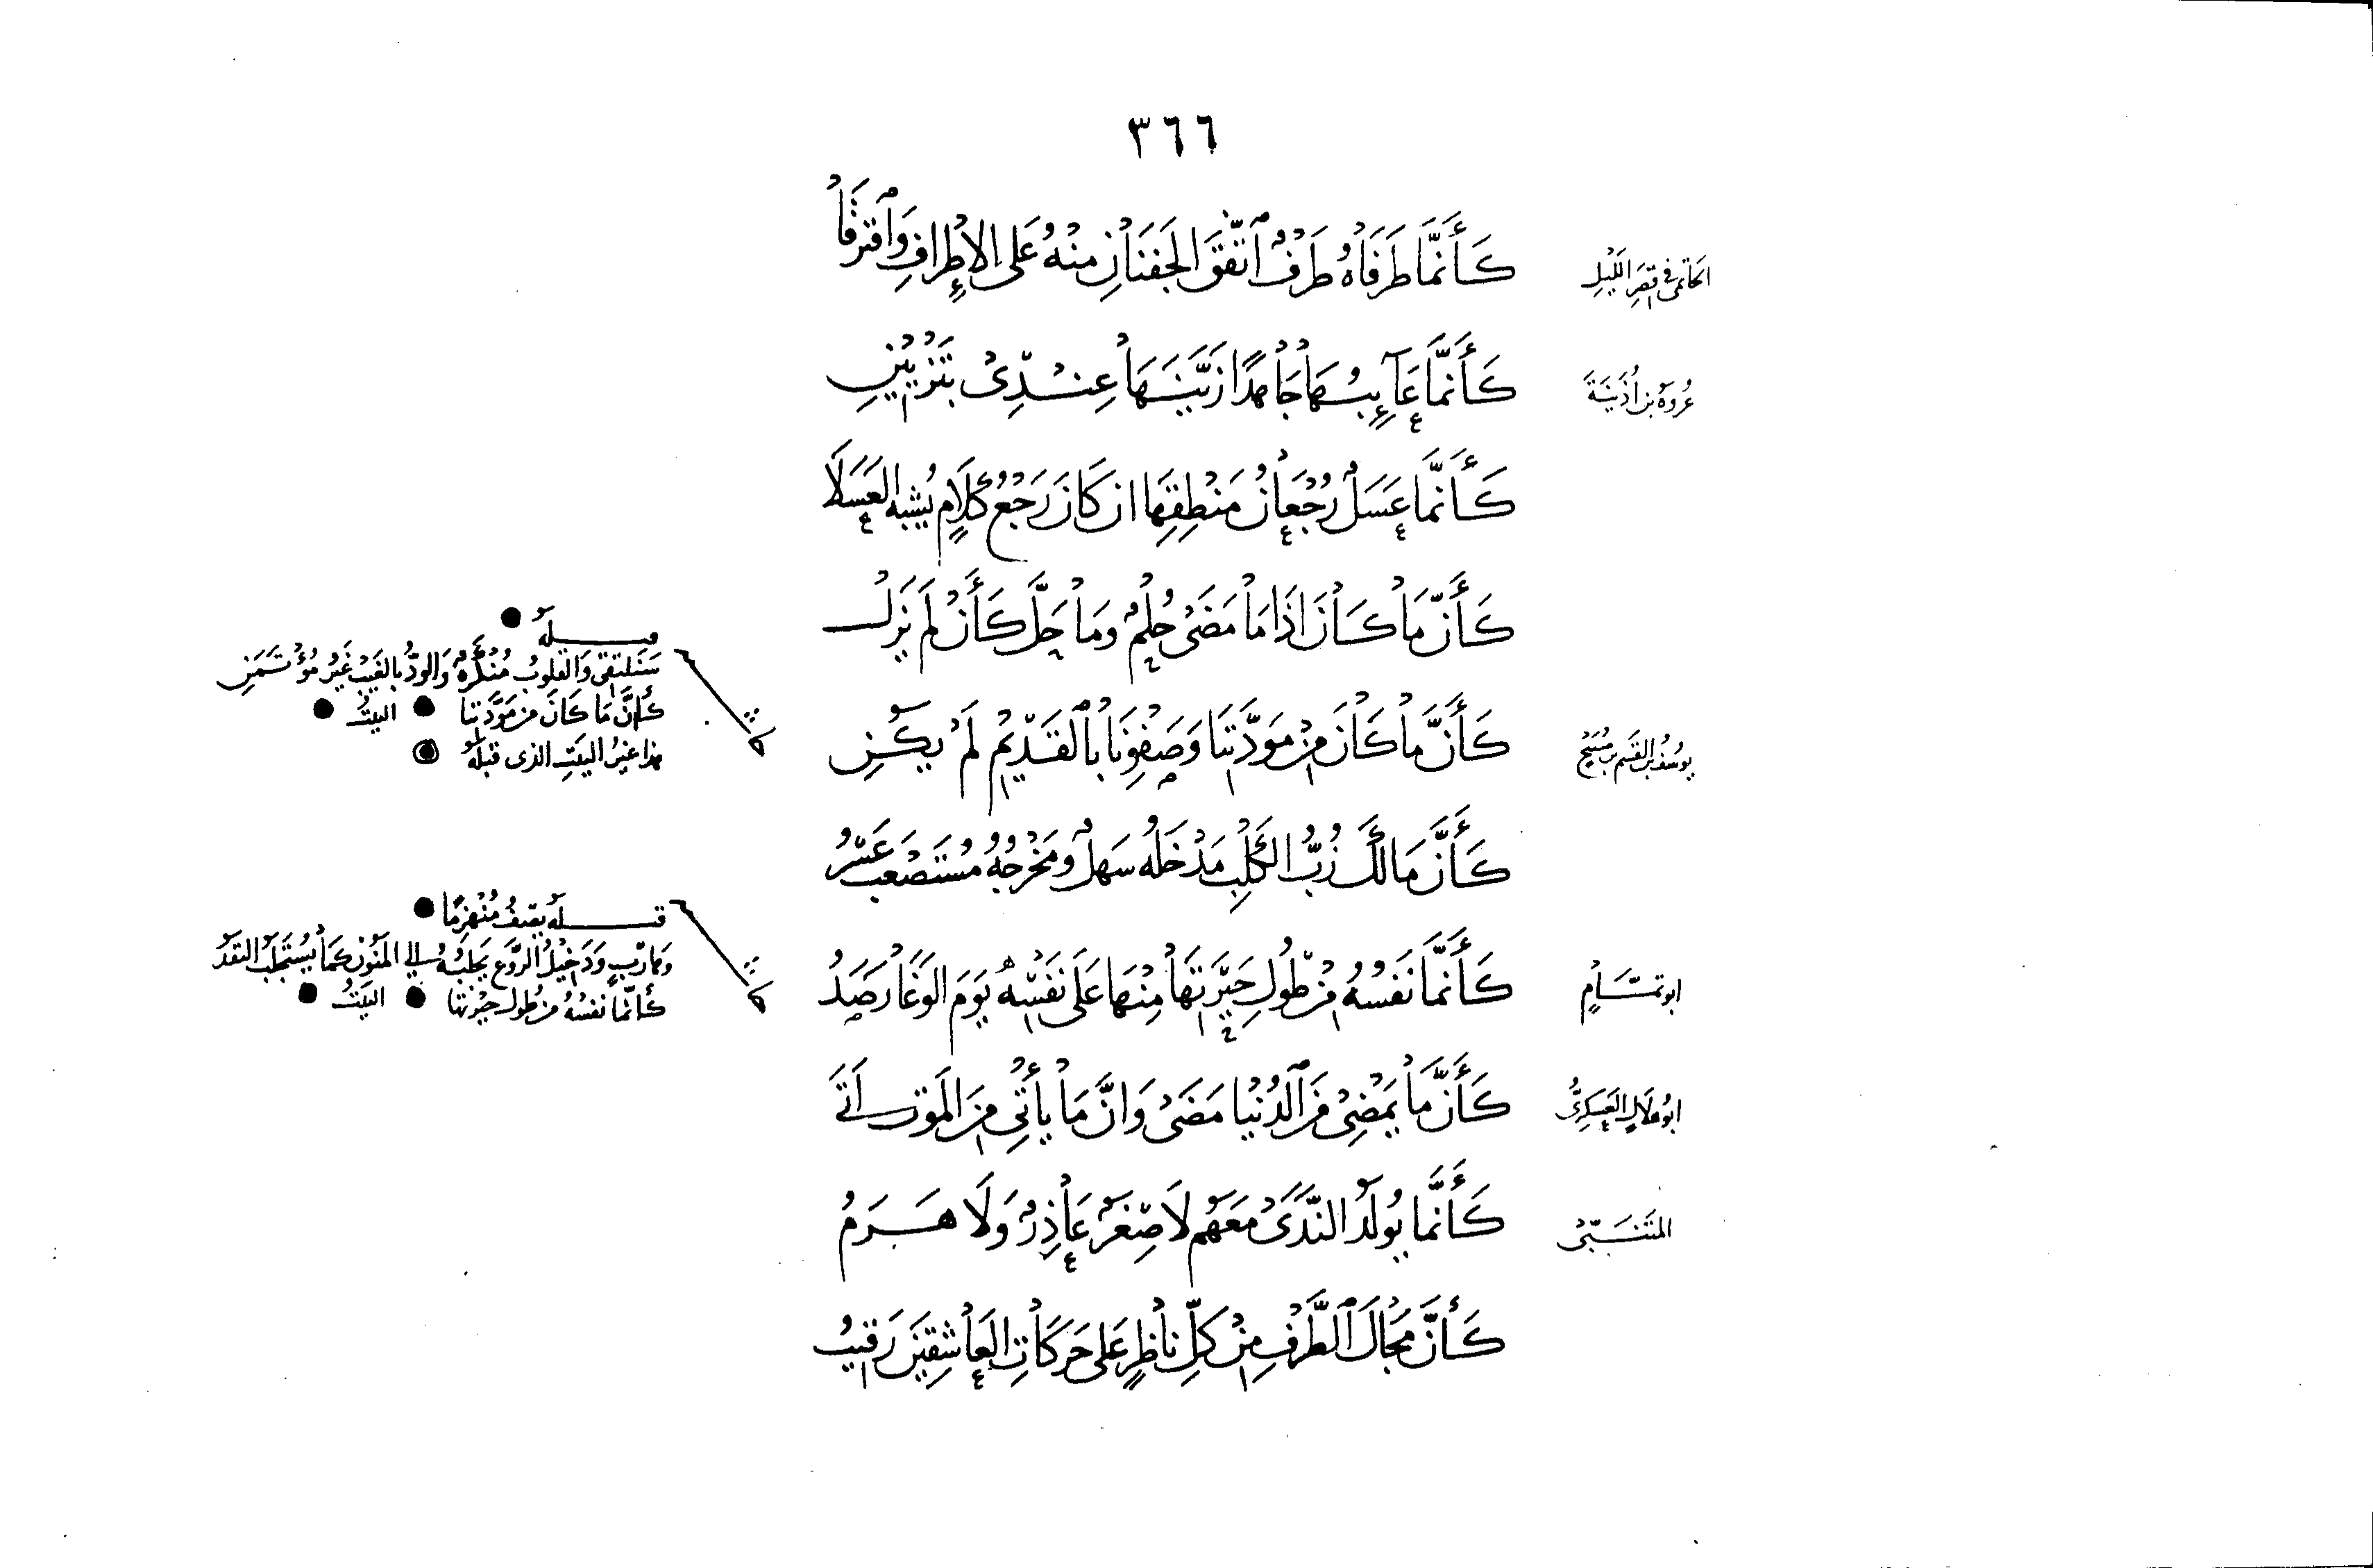 ٣٦٦
الحاتمي في قصر الليل
كَأَنَّمَا طَرَفَاهُ طَرْفٌ اتَّفَقَ الجَفْنَانِ مِنْهُ عَلَى الإِطْرَافِ وَافْتَرَقَا
عُروة بن أُذَيْنَةَ
كَأَنَّمَا عَائِبُهَا جَاهِدًا زَيَّنَهَا عِنْدِي بِتَزْيِيْنِ
كَأَنَّمَا عَسَلٌ رُجْعَانُ مَنْطِقِهَا ان كَانَ رَجْعُ كَلَامٍ يُشْبِهُ العَسَلَا
كَأَنَّ مَا كَانَ اذَا مَا مَضَى حُلْمٌ وَمَا حَلَّ كَأَنْ لَمْ يَزَلْ
يُوسُفُ بن القسم بن صُبَيْح
كَأَنَّ مَا كَانَ مِنْ مَوَدَّتِنَا وَصَفْوِنَا بِالْقَدِيْمِ لَمْ يَكُنِ
قبله
سَنَلتقى وَالقلوبُ مُنْكَرَةٌ وَالودُّ بالغَيْبِ غَيْرُ مُؤْتَمَنِ
كَأَنَّ مَا كَانَ من مَوَدَّتِنَا البيتُ
هذا غيرُ البيتِ الذى قبلهُ
كَأَنَّ مَالَكَ زُبُّ الكَلْبِ مَدْخَلُهُ سَهْلٌ وَمَخْرَجُهُ مُسْتَصْعَبٌ عَسِرُ
ابو تَمَّامٍ
كَأَنَّمَا نَفْسُهُ مِنْ طُولِ حَيْرَتِهَا مِنْهَا عَلَى نَفْسِهِ يَوْمَ الوَغَا رَصَدُ
قبله يَصِفُ مُنْهَزِمًا
وَهَارِبٍ وَدَخِيْلُ الرَّوْعِ يَجْلِبُهُ الى المَنُونِ كَمَا يُسْتَجْلَبُ النَقَدُ
كَأَنَّمَا نفسُهُ من طُول حَيْرَتها البَيْتُ
ابو هِلَالٍ العَسْكَرِيُّ
كَأَنَّ مَا يَمْضِي مِنَ الدُنْيَا مَضَى وَانَّ مَا يَأْتِي مِنَ المَوْتِ أَتَى
المُتَنَبِّي
كَأَنَّمَا يُولَدُ النَّدَى مَعَهُمْ لَا صِغَرٌ عَاذِرٌ وَلَا هَرَمُ
كَأَنَّ مَجَالَ الطَّرْفِ مِنْ كُلِّ نَاظِرٍ عَلَى حَرَكَاتِ العَاشِقِيْنَ رَقِيْبُ